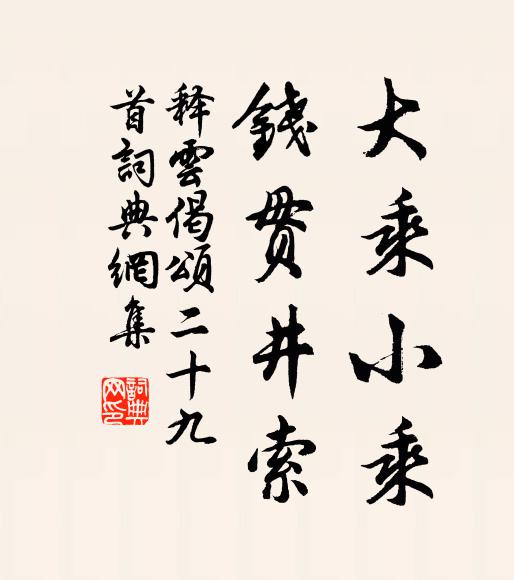 大乘小乘
錢貫井索
释雲偈頌二十九
首詞典網集
詞典
网印